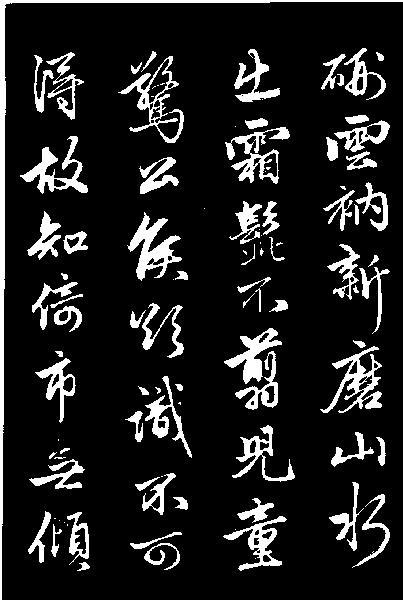 硎雲衲新磨山水
出霜髭不翦兒童
驚公侯欲識不可
得故知倚市無傾